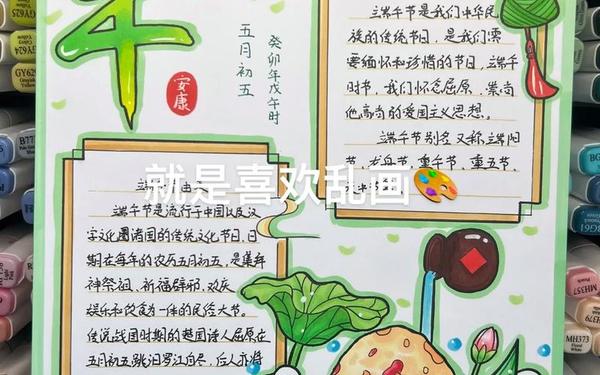 午
安康
癸卯年戊午时
五月初五
端午节是我们中华民
族的传统节日，是我们需
要缅怀和珍惜的节日，端午
时节，我们怀念屈原，崇尚
他高尚的爱国主义思想。
端午节别名又称，端阳
节，龙舟节，重午节，重五节，
就是喜欢乱画
端午
端午节是流行于中国以及汉
字文化圈诸国的传统文化节日，日
期在每年的农历五月初五，是集拜
神祭祖、祈福辟邪、欢庆
娱乐和饮食为一体的民俗大节。
传说战国时期的楚国诗人屈原在
五月初五跳汨罗江自尽，后人亦将
GY625
GY627
BG61
MH357
MH379
MH373